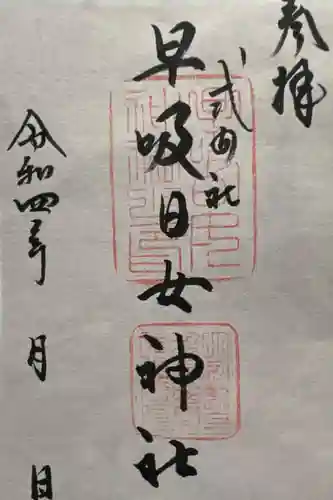 参拝
式内社
早吸日女神社
令和四年 月 日